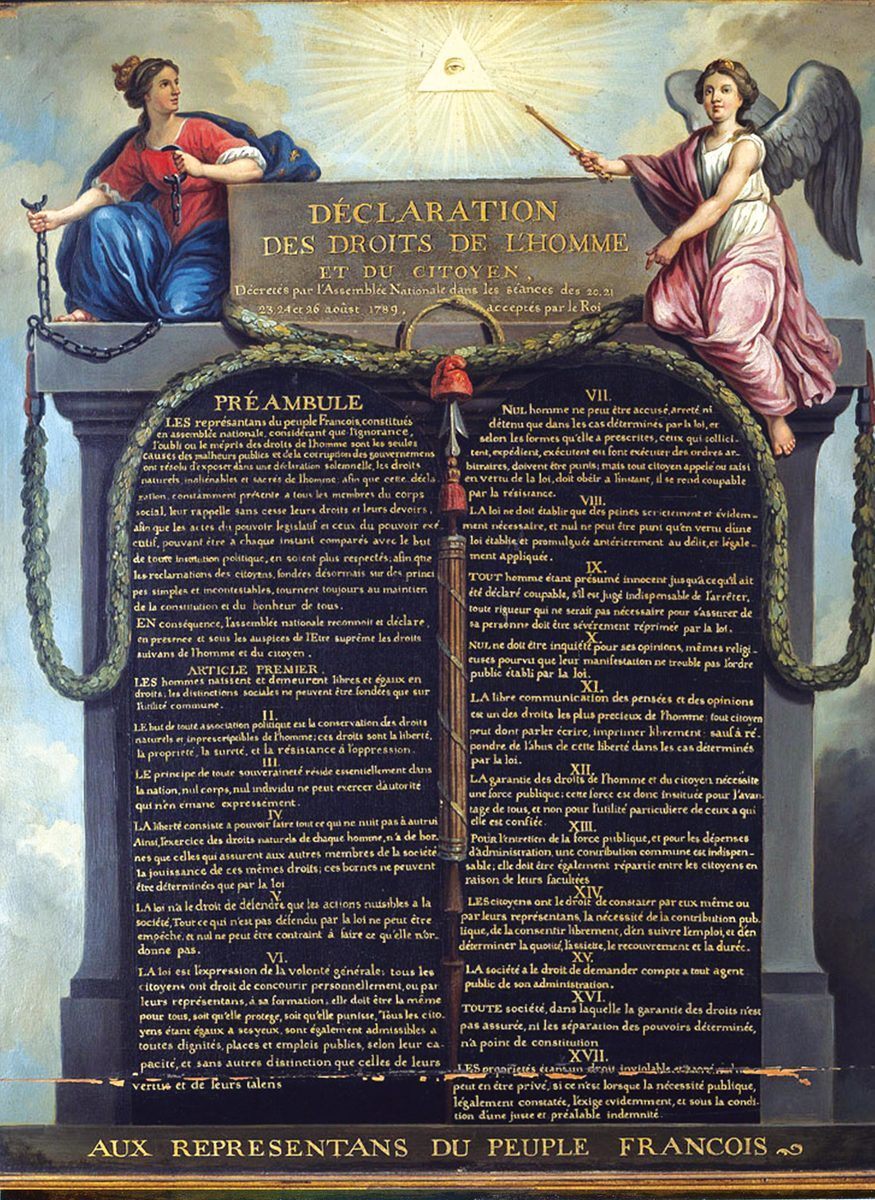 DÉCLARATION
DES DROITS DE L'HOMME
ET DU CITOYEN,
Décretés par l'Assemblée Nationale dans les séances des 20, 21
23, 24 et 26 août 1789, acceptés par le Roi
PRÉAMBULE
LES représantans du peuple François, constitués
en assemblée nationale, considérant que l'ignorance,
l'oubli ou le mépris des droits de l'homme sont les seules
causes des malheurs publics et de la corruption des gouvernemens
ont résolu d'exposer dans une déclaration solemnelle, les droits
naturels, inaliénables et sacrés de l'homme; afin que cette décla
ration, constamment présente a tous les membres du corps
social, leur rappelle sans cesse leurs droits et leurs devoirs,
afin que les actes du pouvoir législatif et ceux du pouvoir exé
cutif, pouvant être a chaque instant comparés avec le but
de toute institution politique, en soient plus respectés; afin que
les reclamations des citoyens, fondées désormais sur des princi
pes simples et incontestables, tournent toujours au maintien
de la constitution et du bonheur de tous.
EN conséquence, l'assemblée nationale reconnoit et déclare,
en presence et sous les auspices de l'Etre suprême les droits
suivans de l'homme et du citoyen.
ARTICLE PREMIER.
LES hommes naissent et demeurent libres et égaux en
droits, les distinctions sociales ne peuvent être fondées que sur
l'utilité commune.
II.
LE but de toute association politique est la conservation des droits
naturels et inprescriptibles de l'homme; ces droits sont la liberté,
la propriété, la sureté, et la résistance à l'oppression.
III.
LE principe de toute souveraineté réside essentiellement dans
la nation, nul corps, nul individu ne peut exercer d'autorité
qui n'en émane expressement.
IV.
LA liberté consiste a pouvoir faire tout ce qui ne nuit pas à autrui
Ainsi, l'exercice des droits naturels de chaque homme, n'a de bor-
nes que celles qui assurent aux autres membres de la société
la jouissance de ces mêmes droits; ces bornes ne peuvent
être déterminées que par la loi
V.
LA loi n'a le droit de défendre que les actions nuisibles a la
société, Tout ce qui n'est pas défendu par la loi ne peut être
empêché, et nul ne peut être contraint à faire ce qu'elle n'or-
donne pas.
VI.
LA loi est l'expression de la volonté générale; tous les
citoyens ont droit de concourir personnellement, ou par
leurs représentans, à sa formation; elle doit être la même
pour tous, soit qu'elle protege, soit qu'elle punisse, Tous les cito
yens étant égaux a ses yeux, sont également admissibles a
toutes dignités, places et emplois publics, selon leur ca-
pacité, et sans autres distinction que celles de leurs
vertus et de leurs talens
VII.
NUL homme ne peut être accusé, arreté ni
détenu que dans les cas déterminés par la loi, et
selon les formes qu'elle a prescrites, ceux qui sollici-
tent, expédient, exécutent ou font exécuter des ordres ar-
bitraires, doivent être punis; mais tout citoyen appelé ou saisi
en vertu de la loi, doit obéir a l'instant, il se rend coupable
par la résistance.
VIII.
LA loi ne doit établir que des peines strictement et évidem-
ment nécessaire, et nul ne peut être puni qu'en vertu d'une
loi établie et promulguée antérierement au délit, et légale-
ment appliquée.
IX.
TOUT homme étant présumé innocent jusqu'à ce qu'il ait
été déclaré coupable, s'il est jugé indispensable de l'arrêter,
toute rigueur qui ne serait pas nécessaire pour s'assurer de
sa personne doit être sévèrement réprimée par la loi.
X.
NUL ne doit être inquiété pour ses opinions, mêmes religi-
euses pourvu que leur manifestation ne trouble pas l'ordre
public établi par la loi.
XI.
LA libre communication des pensées et des opinions
est un des droits les plus precieux de l'homme; tout citoyen
peut dont parler écrire, imprimer librement: sauf à ré-
pondre de l'abus de cette liberté dans les cas déterminés
par la loi.
XII.
LA garantie des droits de l'homme et du citoyen nécessite
une force publique; cette force est donc instituée pour l'avan-
tage de tous, et non pour l'utilité particuliere de ceux a qui
elle est confiée.
XIII.
POUR l'entretien de la force publique, et pour les dépenses
d'administration, une contribution commune est indispen-
sable; elle doit être également répartie entre les citoyens en
raison de leurs facultées
XIV.
LES citoyens ont le droit de constater par eux même ou
par leurs représentans, la nécessité de la contribution pub-
lique, de la consentir librement, d'en suivre l'emploi, et d'en
déterminer la quotité, l'assiette, le recouvrement et la durée.
XV.
LA société a le droit de demander compte a tout agent
public de son administration.
XVI.
TOUTE société, dans laquelle la garantie des droits n'est
pas assurée, ni les séparation des pouvoirs déterminée,
n'a point de constitution
XVII.
LES propriétés étant un droit inviolable et sacré, nul ne
peut en être privé, si ce n'est lorsque la nécessité publique,
légalement constatée, l'exige evidemment, et sous la condi-
tion d'une juste et préalable indemnité.
AUX REPRESENTANS DU PEUPLE FRANCOIS